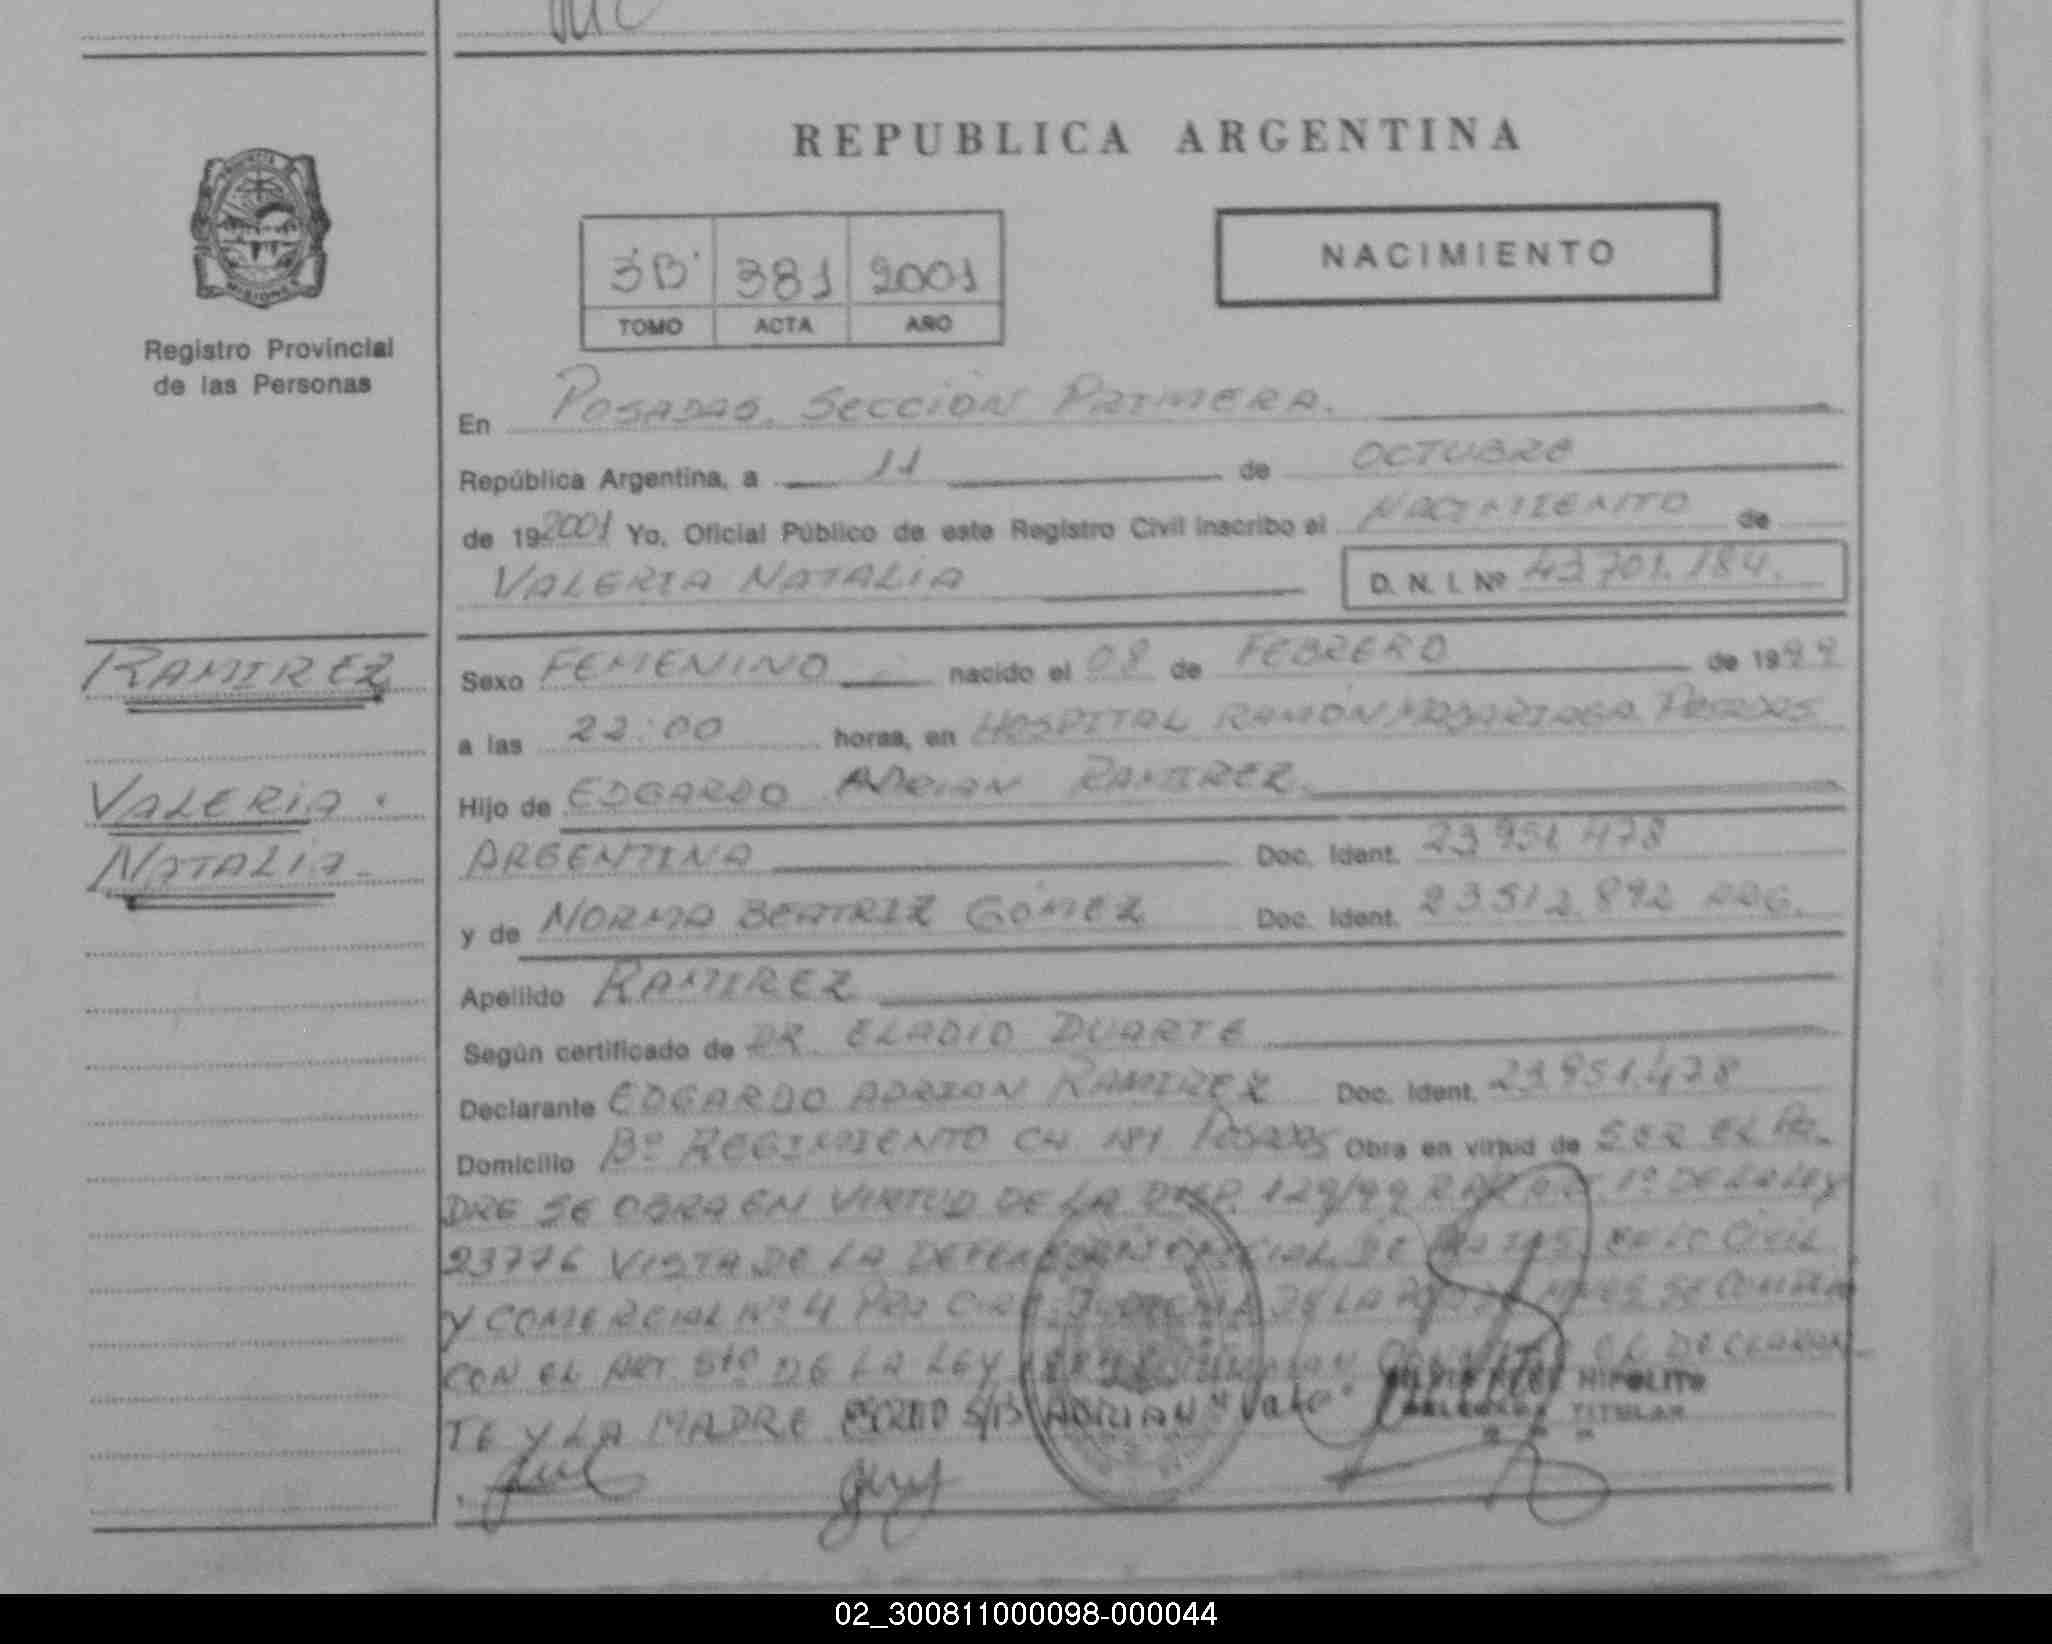 REPUBLICA ARGENTINA
NACIMIENTO
3B 381 2001
TOMO ACTA AÑO
Registro Provincial
de las Personas
En POSADAS. SECCION PRIMERA.
República Argentina, a 11 de OCTUBRE
de 19 2001 Yo, Oficial Público de este Registro Civil inscribo el NACIMIENTO de
VALERIA NATALIA D. N. I. Nº 43.701.184.
RAMIREZ
Sexo FEMENINO nacido el 08 de FEBRERO de 1999
a las 22:00 horas, en HOSPITAL RAMON MADARIAGA POSADAS
VALERIA
Hijo de EDGARDO ADRIAN RAMIREZ.
NATALIA.
ARGENTINA Doc. Ident. 23.951.478
y de NORMA BEATRIZ GOMEZ Doc. Ident. 23.512.892 ARG.
Apellido RAMIREZ
Según certificado de DR. ELADIO DUARTE
Declarante EDGARDO ADRIAN RAMIREZ Doc. Ident. 23.951.478
Domicilio Bº REGIMIENTO CH. 181 POSADAS Obra en virtud de SER EL PA-
DRE SE OBRA EN VIRTUD DE LA DISP. 129/99 ART. 1º DE LA LEY
23776 VISTA DE LA DE EN LO CIVIL
Y COMERCIAL Nº 4 DE LA
CON EL ART. 5to DE LA LEY EL DECLARAN-
TE Y LA MADRE S/B ADRIAN "Vale"
HIPOLITO
TITULAR
02_300811000098-000044